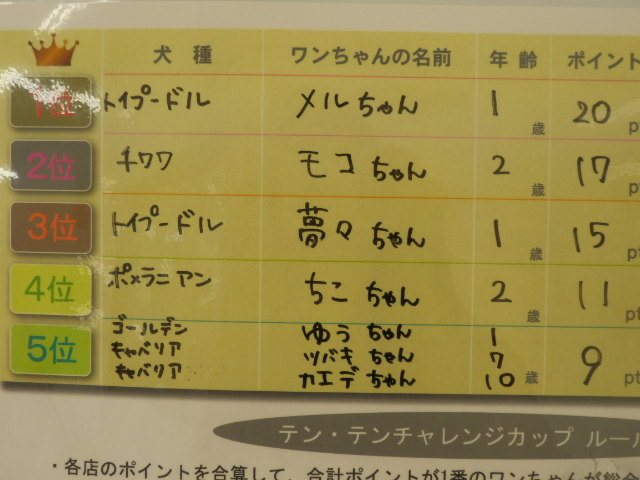 犬種 ワンちゃんの名前 年齢 ポイント
1位 トイプードル メルちゃん 1歳 20pt
2位 チワワ モコちゃん 2歳 17pt
3位 トイプードル 夢々ちゃん 1歳 15pt
4位 ポメラニアン ちこちゃん 2歳 11pt
ゴールデン ゆうちゃん 1
5位 キャバリア ツバキちゃん 7 9pt
キャバリア カエデちゃん 10歳
テン・テンチャレンジカップ ルール
・各店のポイントを合算して、合計ポイントが1番のワンちゃんが総合